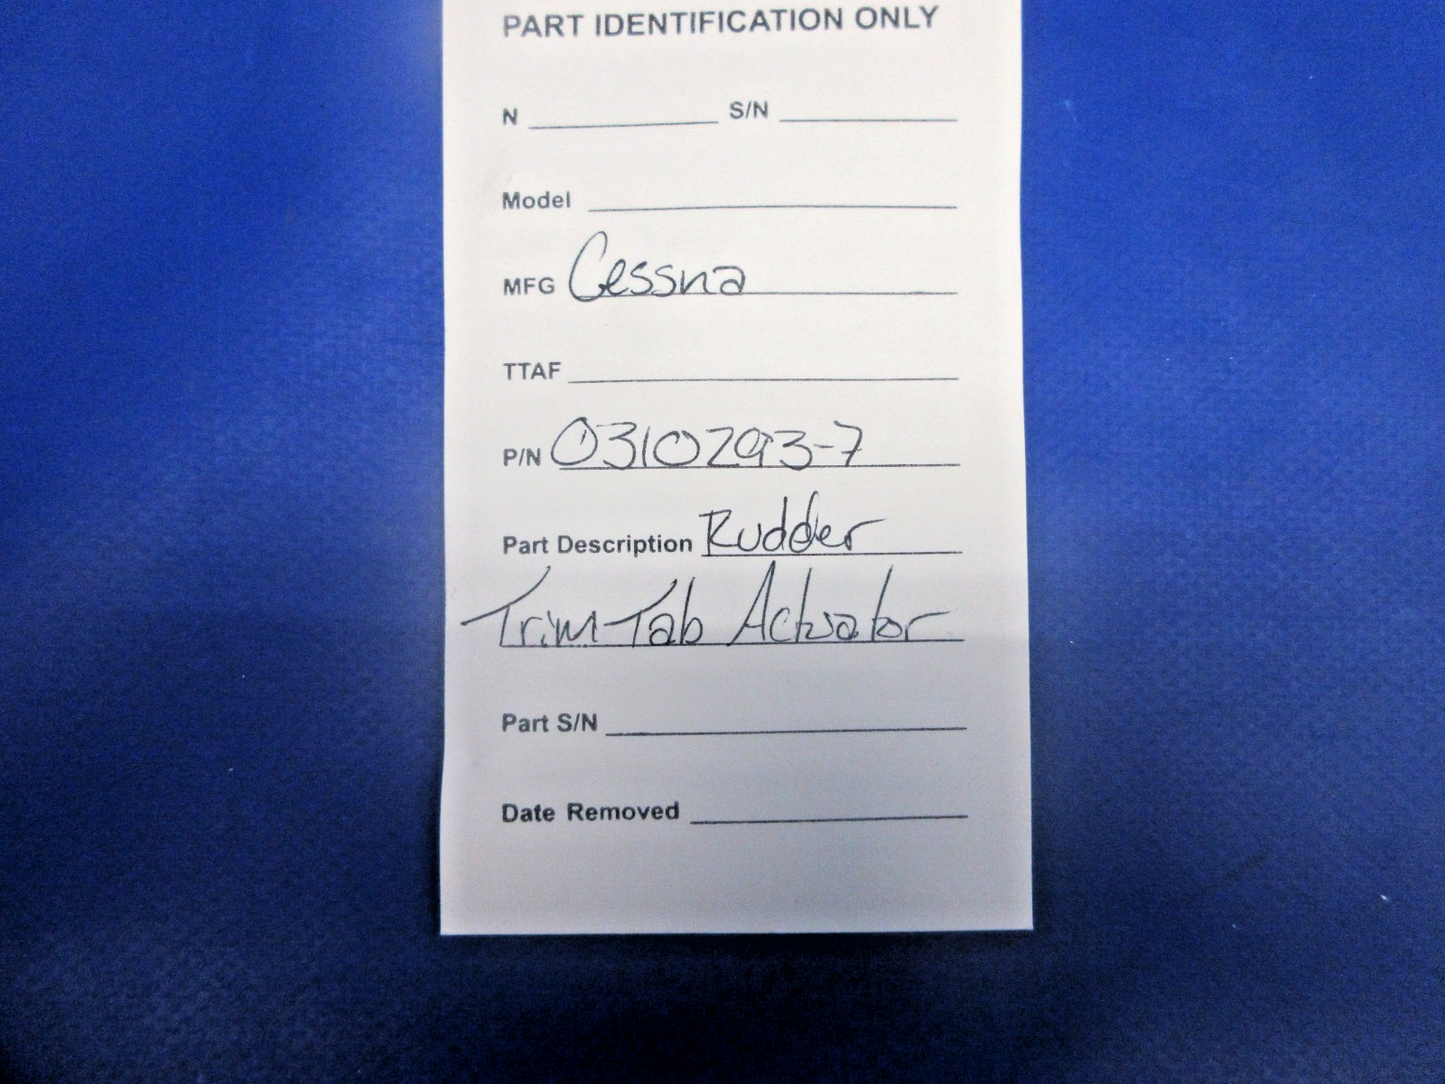 PART IDENTIFICATION ONLY
N S/N
Model
MFG Cessna
TTAF
P/N 0310293-7
Part Description Rudder
Trim Tab Actuator
Part S/N
Date Removed